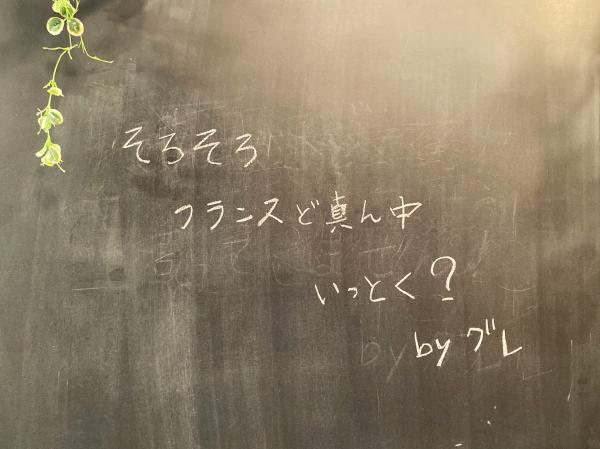 そろそろ
フランスど真ん中
いっとく?
by グレ